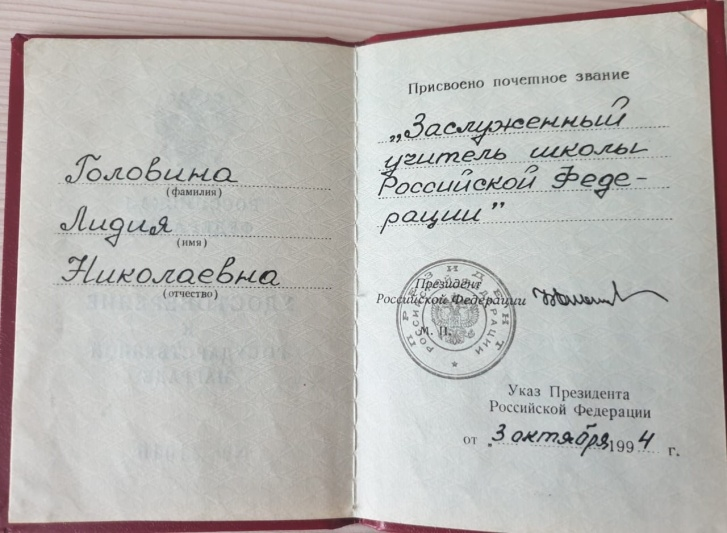 Головина
(фамилия)
Лидия
(имя)
Николаевна
(отчество)
Присвоено почетное звание
„Заслуженный
учитель школы
Российской Феде-
рации”
Президент
Российской Федерации
М. П.
ПРЕЗИДЕНТ
РОССИЙСКАЯ ФЕДЕРАЦИЯ
Указ Президента
Российской Федерации
от „3 октября 1994 г.